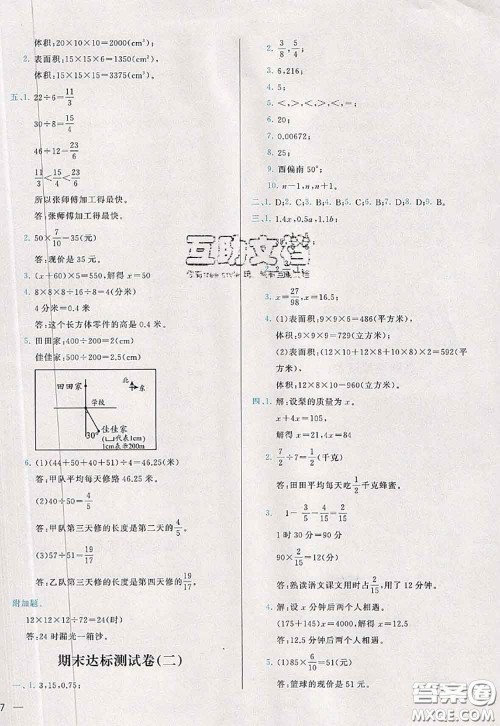 体积:20×10×10=2000(cm³)
2. 表面积:15×15×6=1350(cm²)
体积:15×15×15=3375(cm³).
五、1. 22÷6=11/3
30÷8=15/4
46÷12=23/6
11/3<15/4<23/6
所以张师傅加工得最快。
答:张师傅加工得最快。
2. 50×7/10=35(元)
答:现价是 35 元。
3. (x+60)×5=550,解得 x=50
4. 8×8×8÷16÷8=4(分米)
4 分米=0.4 米
答:这个长方体零件的高是 0.4 米。
5. 田田家:400÷200=2(cm)
佳佳家:400÷200=2(cm)
田田家
北
东
学校
30°
佳佳家
代表1cm
1cm表示200m
6. (1)(44+50+40+51)÷4=46.25(米)
答:甲队平均每天修路 46.25 米。
(2)40÷50=4/5
答:甲队第三天修的长度是第二天的4/5。
(3)51÷57=17/19
答:乙队第三天修的长度是第四天修的17/19。
附加题.
12×12×12÷72=24(时)
答:24 时漏光一箱沙。
期末达标测试卷(二)
一、1. 3,15,0.75;
2. 3/8,3/4;
3. 6,216;
4. 5;
5. <,>,<,>,>,>;
6. 20;
7. 0.00672;
9. 西偏南 50°;
10. n-1,n+1.
二、1. D;2. C;3. D;4. B;5. C;6. B;7. D;8. D;9. B.
三、1. 1.4x,0.5a,1b;
互助文档
3. x=27/98,x=16.5;
4. (1)表面积:9×9×6=486(平方米),
体积:9×9×9=729(立方米);
(2)表面积:(12×10+12×8+10×8)×2=592(平
方米),
体积:12×8×10=960(立方米);
四、1. 解:设梨的质量为 x.
x+4x=105.
解得 x=21;
2. 7/2÷7=1/2(千克)
答:田田平均每天吃1/2千克蜂蜜。
1 时 30 分=90 分
答:熟读语文课文用时占2/15,用了 12 分钟。
4. (1)解:设 x 分钟后两个人相遇。
(175+145)x=3200,解得 x=10
答:10 分钟后两个人相遇。
答:篮球的现价是 51 元。
7
答案圈
MXQE.COM